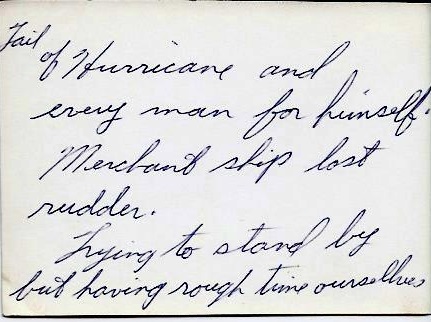 Tail
of Hurricane and
every man for himself.
Merchant ship lost
rudder.
Trying to stand by
but having rough time ourselves